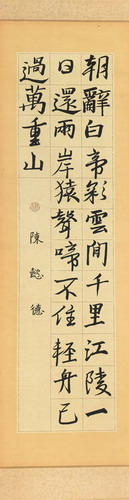 朝辭白帝彩雲間千里江陵一
日還雨岸猿聲啼不住輕舟已
過萬重山
陳懿德